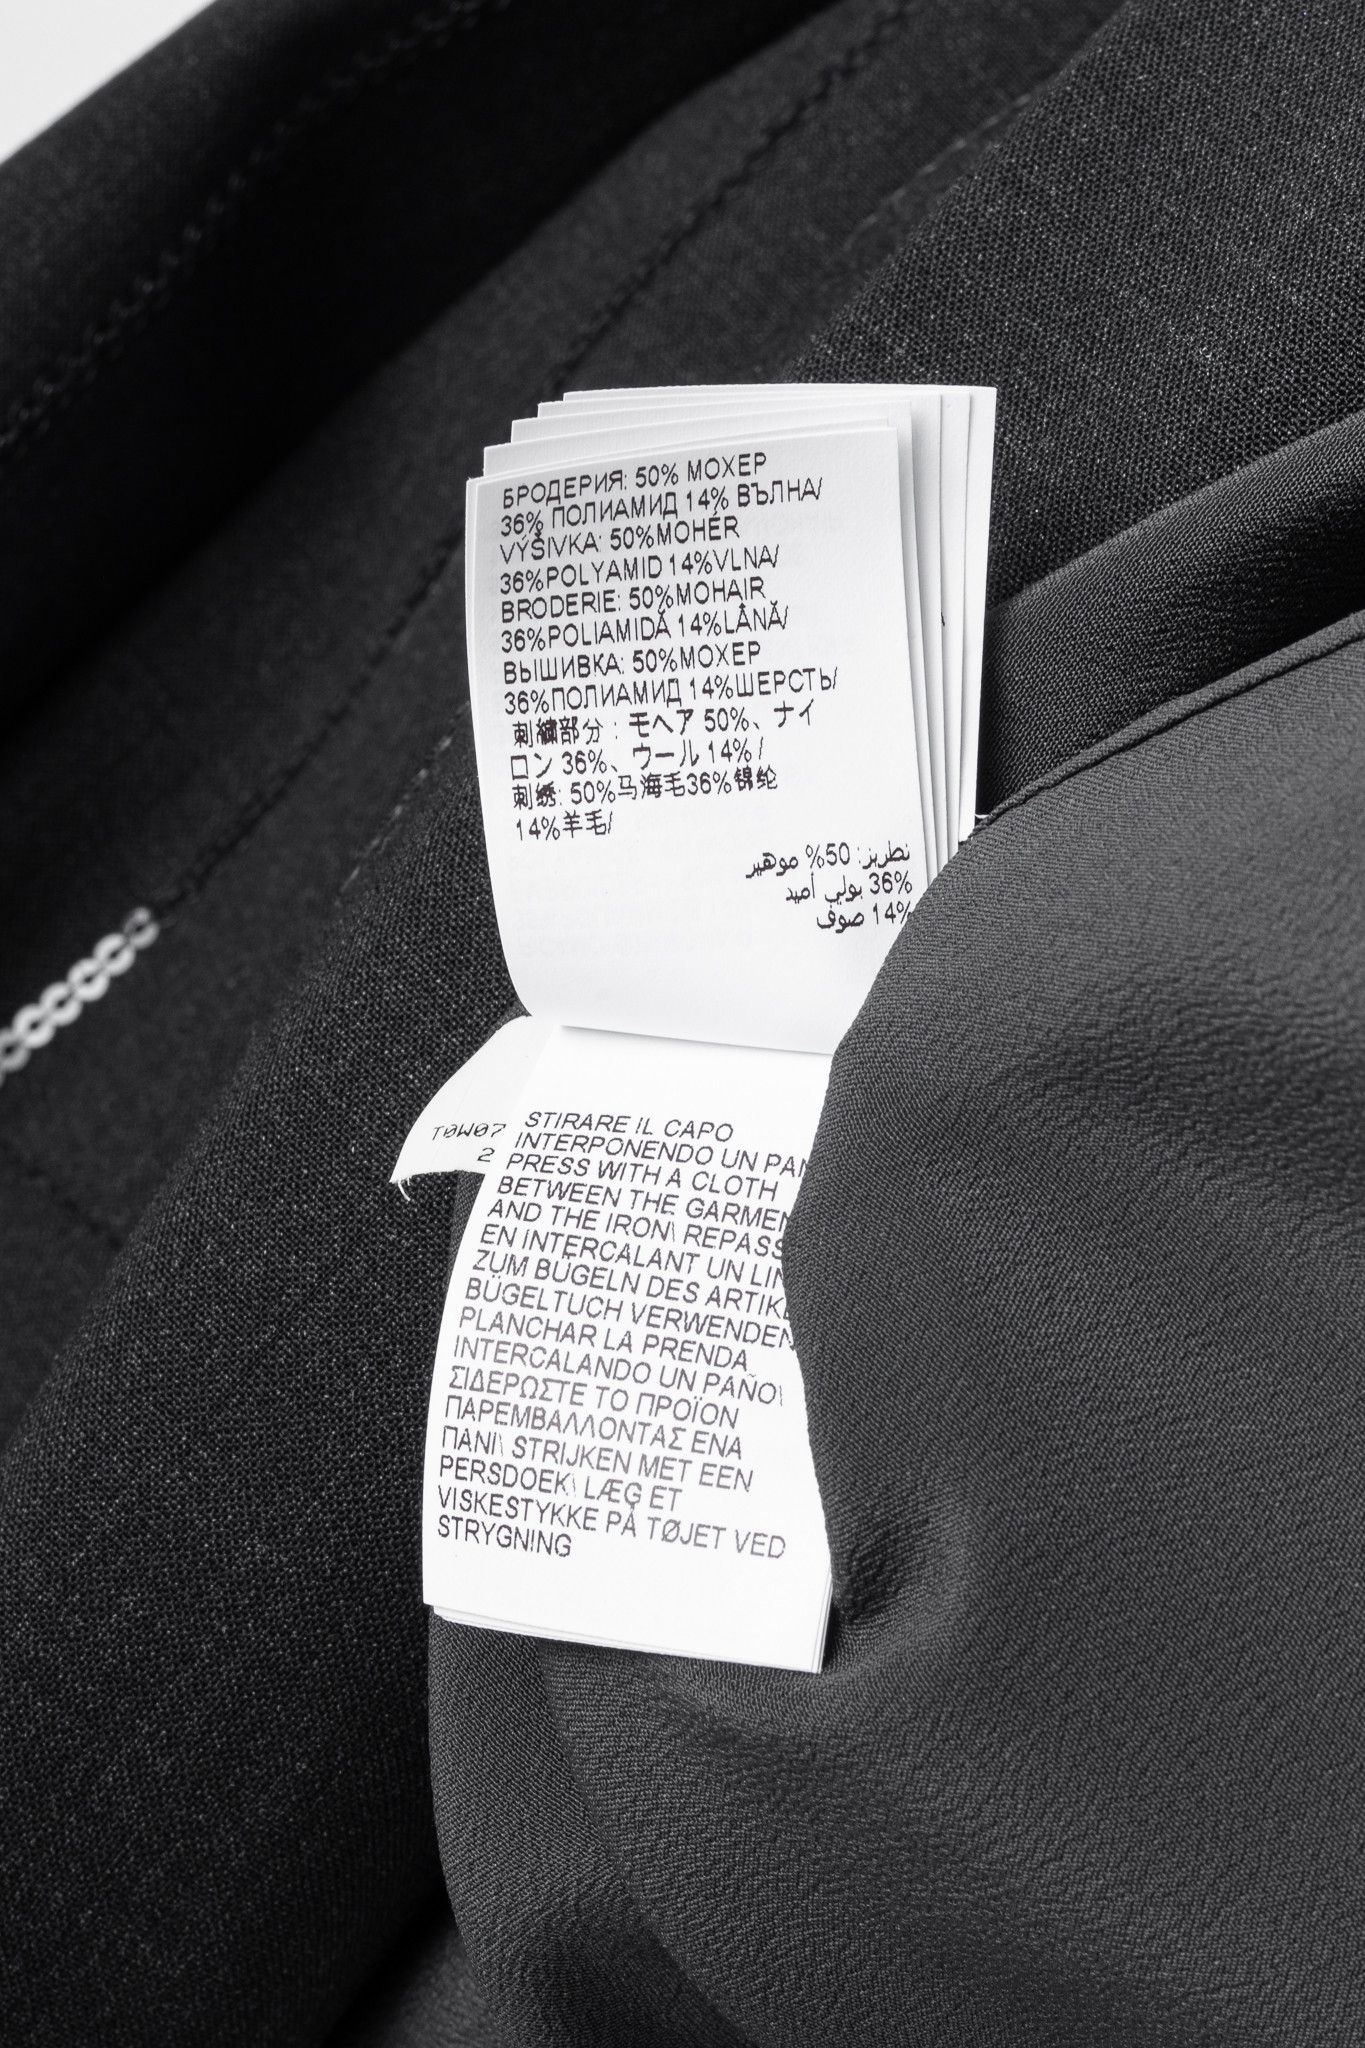 БРОДЕРИЯ: 50% МОХЕР
36% ПОЛИАМИД 14% ВЪЛНА/
VÝŠIVKA: 50%MOHÉR
36%POLYAMID 14%VLNA/
BRODERIE: 50%MOHAIR
36%POLIAMIDĂ 14%LÂNĂ/
ВЫШИВКА: 50%МОХЕР
36%ПОЛИАМИД 14%ШЕРСТЬ/
刺繍部分：モヘア 50%、ナイ
ロン 36%、ウール 14% /
刺绣: 50%马海毛36%锦纶
14%羊毛/
تطريز: 50% موهير
36% بولي أميد
14% صوف
T0W07
2
STIRARE IL CAPO
INTERPONENDO UN PAN
PRESS WITH A CLOTH
BETWEEN THE GARMEN
AND THE IRON\ REPASS
EN INTERCALANT UN LIN
ZUM BÜGELN DES ARTIKE
BÜGELTUCH VERWENDEN
PLANCHAR LA PRENDA
INTERCALANDO UN PAÑO\
ΣΙΔΕΡΩΣΤΕ ΤΟ ΠΡΟΪΟΝ
ΠΑΡΕΜΒΑΛΛΟΝΤΑΣ ΕΝΑ
ΠΑΝΙ\ STRIJKEN MET EEN
PERSDOEK\ LÆG ET
VISKESTYKKE PÅ TØJET VED
STRYGNING